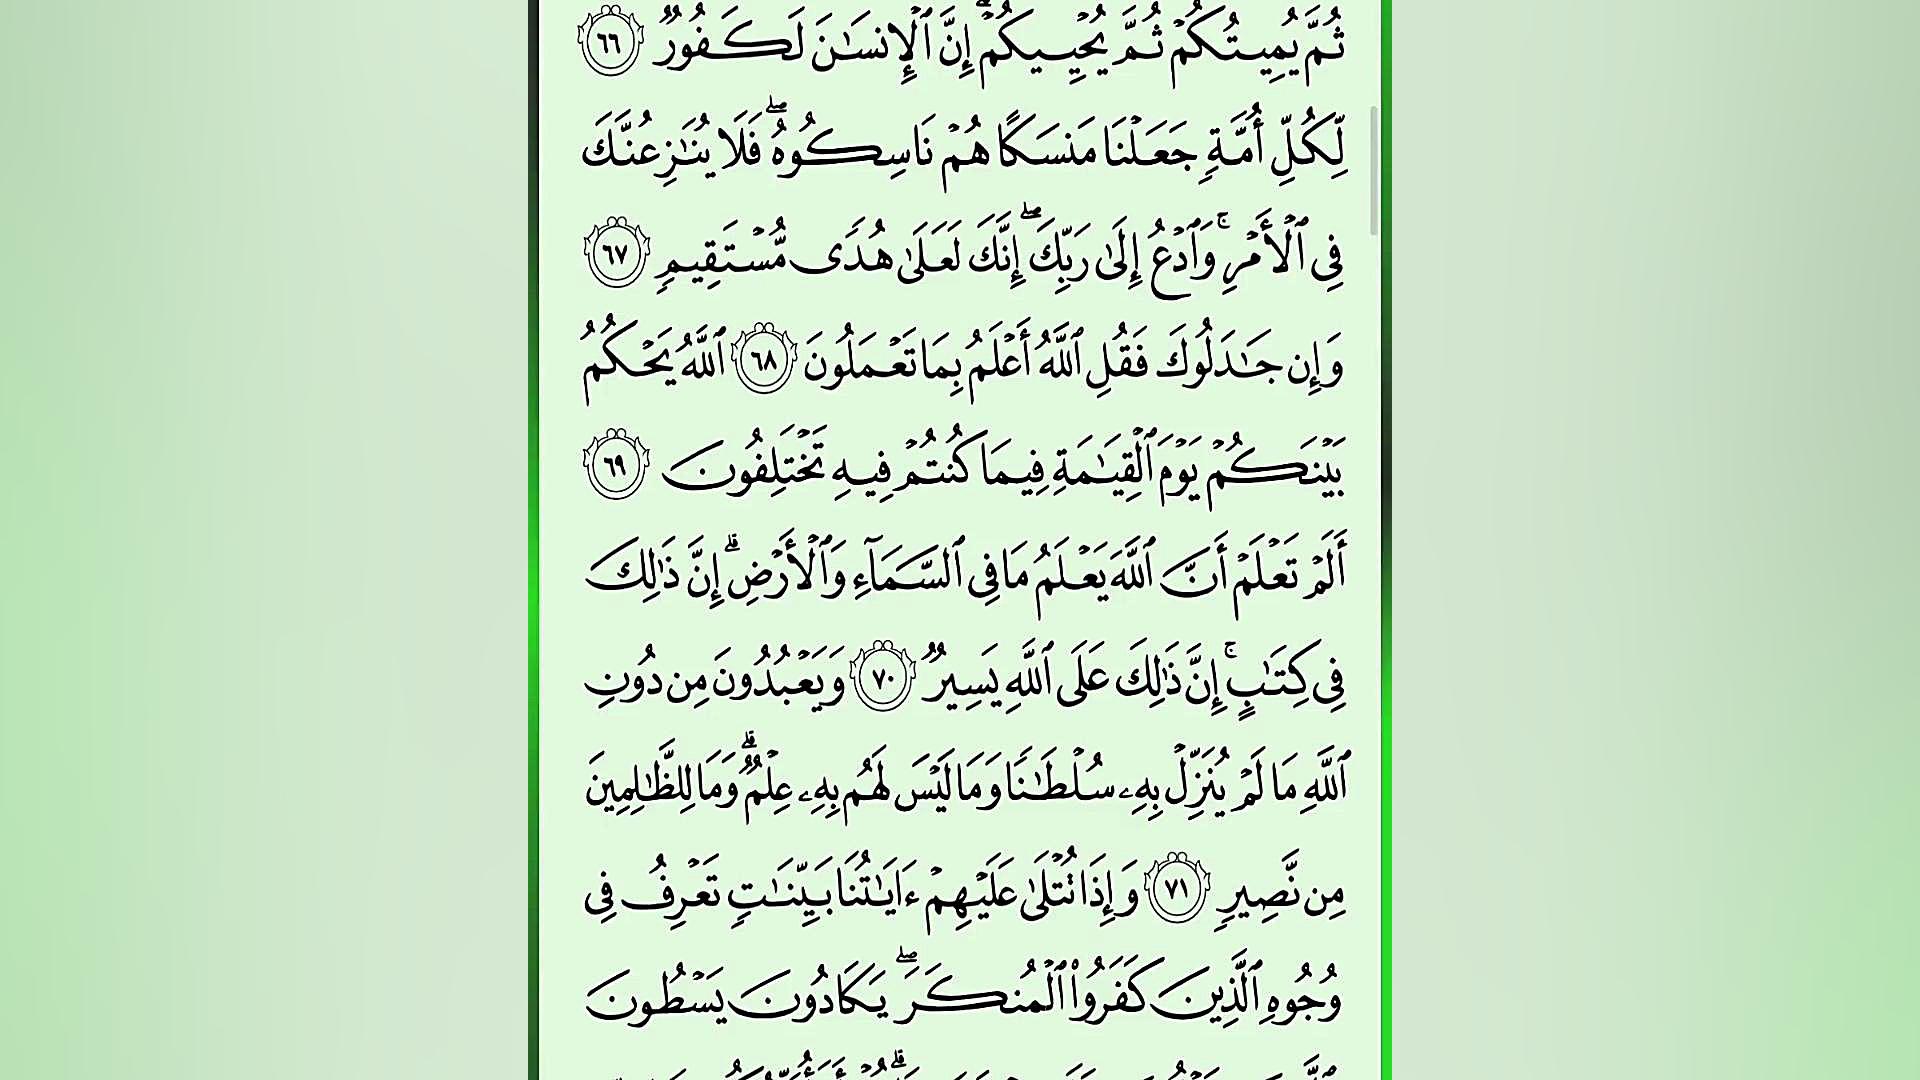 ثُمَّ يُمِيتُكُمْ ثُمَّ يُحْيِيكُمْ ۗ إِنَّ ٱلْإِنسَٰنَ لَكَفُورٌ ٦٦
لِّكُلِّ أُمَّةٍ جَعَلْنَا مَنسَكًا هُمْ نَاسِكُوهُ ۖ فَلَا يُنَٰزِعُنَّكَ
فِى ٱلْأَمْرِ ۚ وَٱدْعُ إِلَىٰ رَبِّكَ ۖ إِنَّكَ لَعَلَىٰ هُدًى مُّسْتَقِيمٍ ٦٧
وَإِن جَٰدَلُوكَ فَقُلِ ٱللَّهُ أَعْلَمُ بِمَا تَعْمَلُونَ ٦٨ ٱللَّهُ يَحْكُمُ
بَيْنَكُمْ يَوْمَ ٱلْقِيَٰمَةِ فِيمَا كُنتُمْ فِيهِ تَخْتَلِفُونَ ٦٩
أَلَمْ تَعْلَمْ أَنَّ ٱللَّهَ يَعْلَمُ مَا فِى ٱلسَّمَآءِ وَٱلْأَرْضِ ۗ إِنَّ ذَٰلِكَ
فِى كِتَٰبٍ ۚ إِنَّ ذَٰلِكَ عَلَى ٱللَّهِ يَسِيرٌ ٧٠ وَيَعْبُدُونَ مِن دُونِ
ٱللَّهِ مَا لَمْ يُنَزِّلْ بِهِۦ سُلْطَٰنًا وَمَا لَيْسَ لَهُم بِهِۦ عِلْمٌ ۗ وَمَا لِلظَّٰلِمِينَ
مِن نَّصِيرٍ ٧١ وَإِذَا تُتْلَىٰ عَلَيْهِمْ ءَايَٰتُنَا بَيِّنَٰتٍ تَعْرِفُ فِى
وُجُوهِ ٱلَّذِينَ كَفَرُوا۟ ٱلْمُنكَرَ ۖ يَكَادُونَ يَسْطُونَ